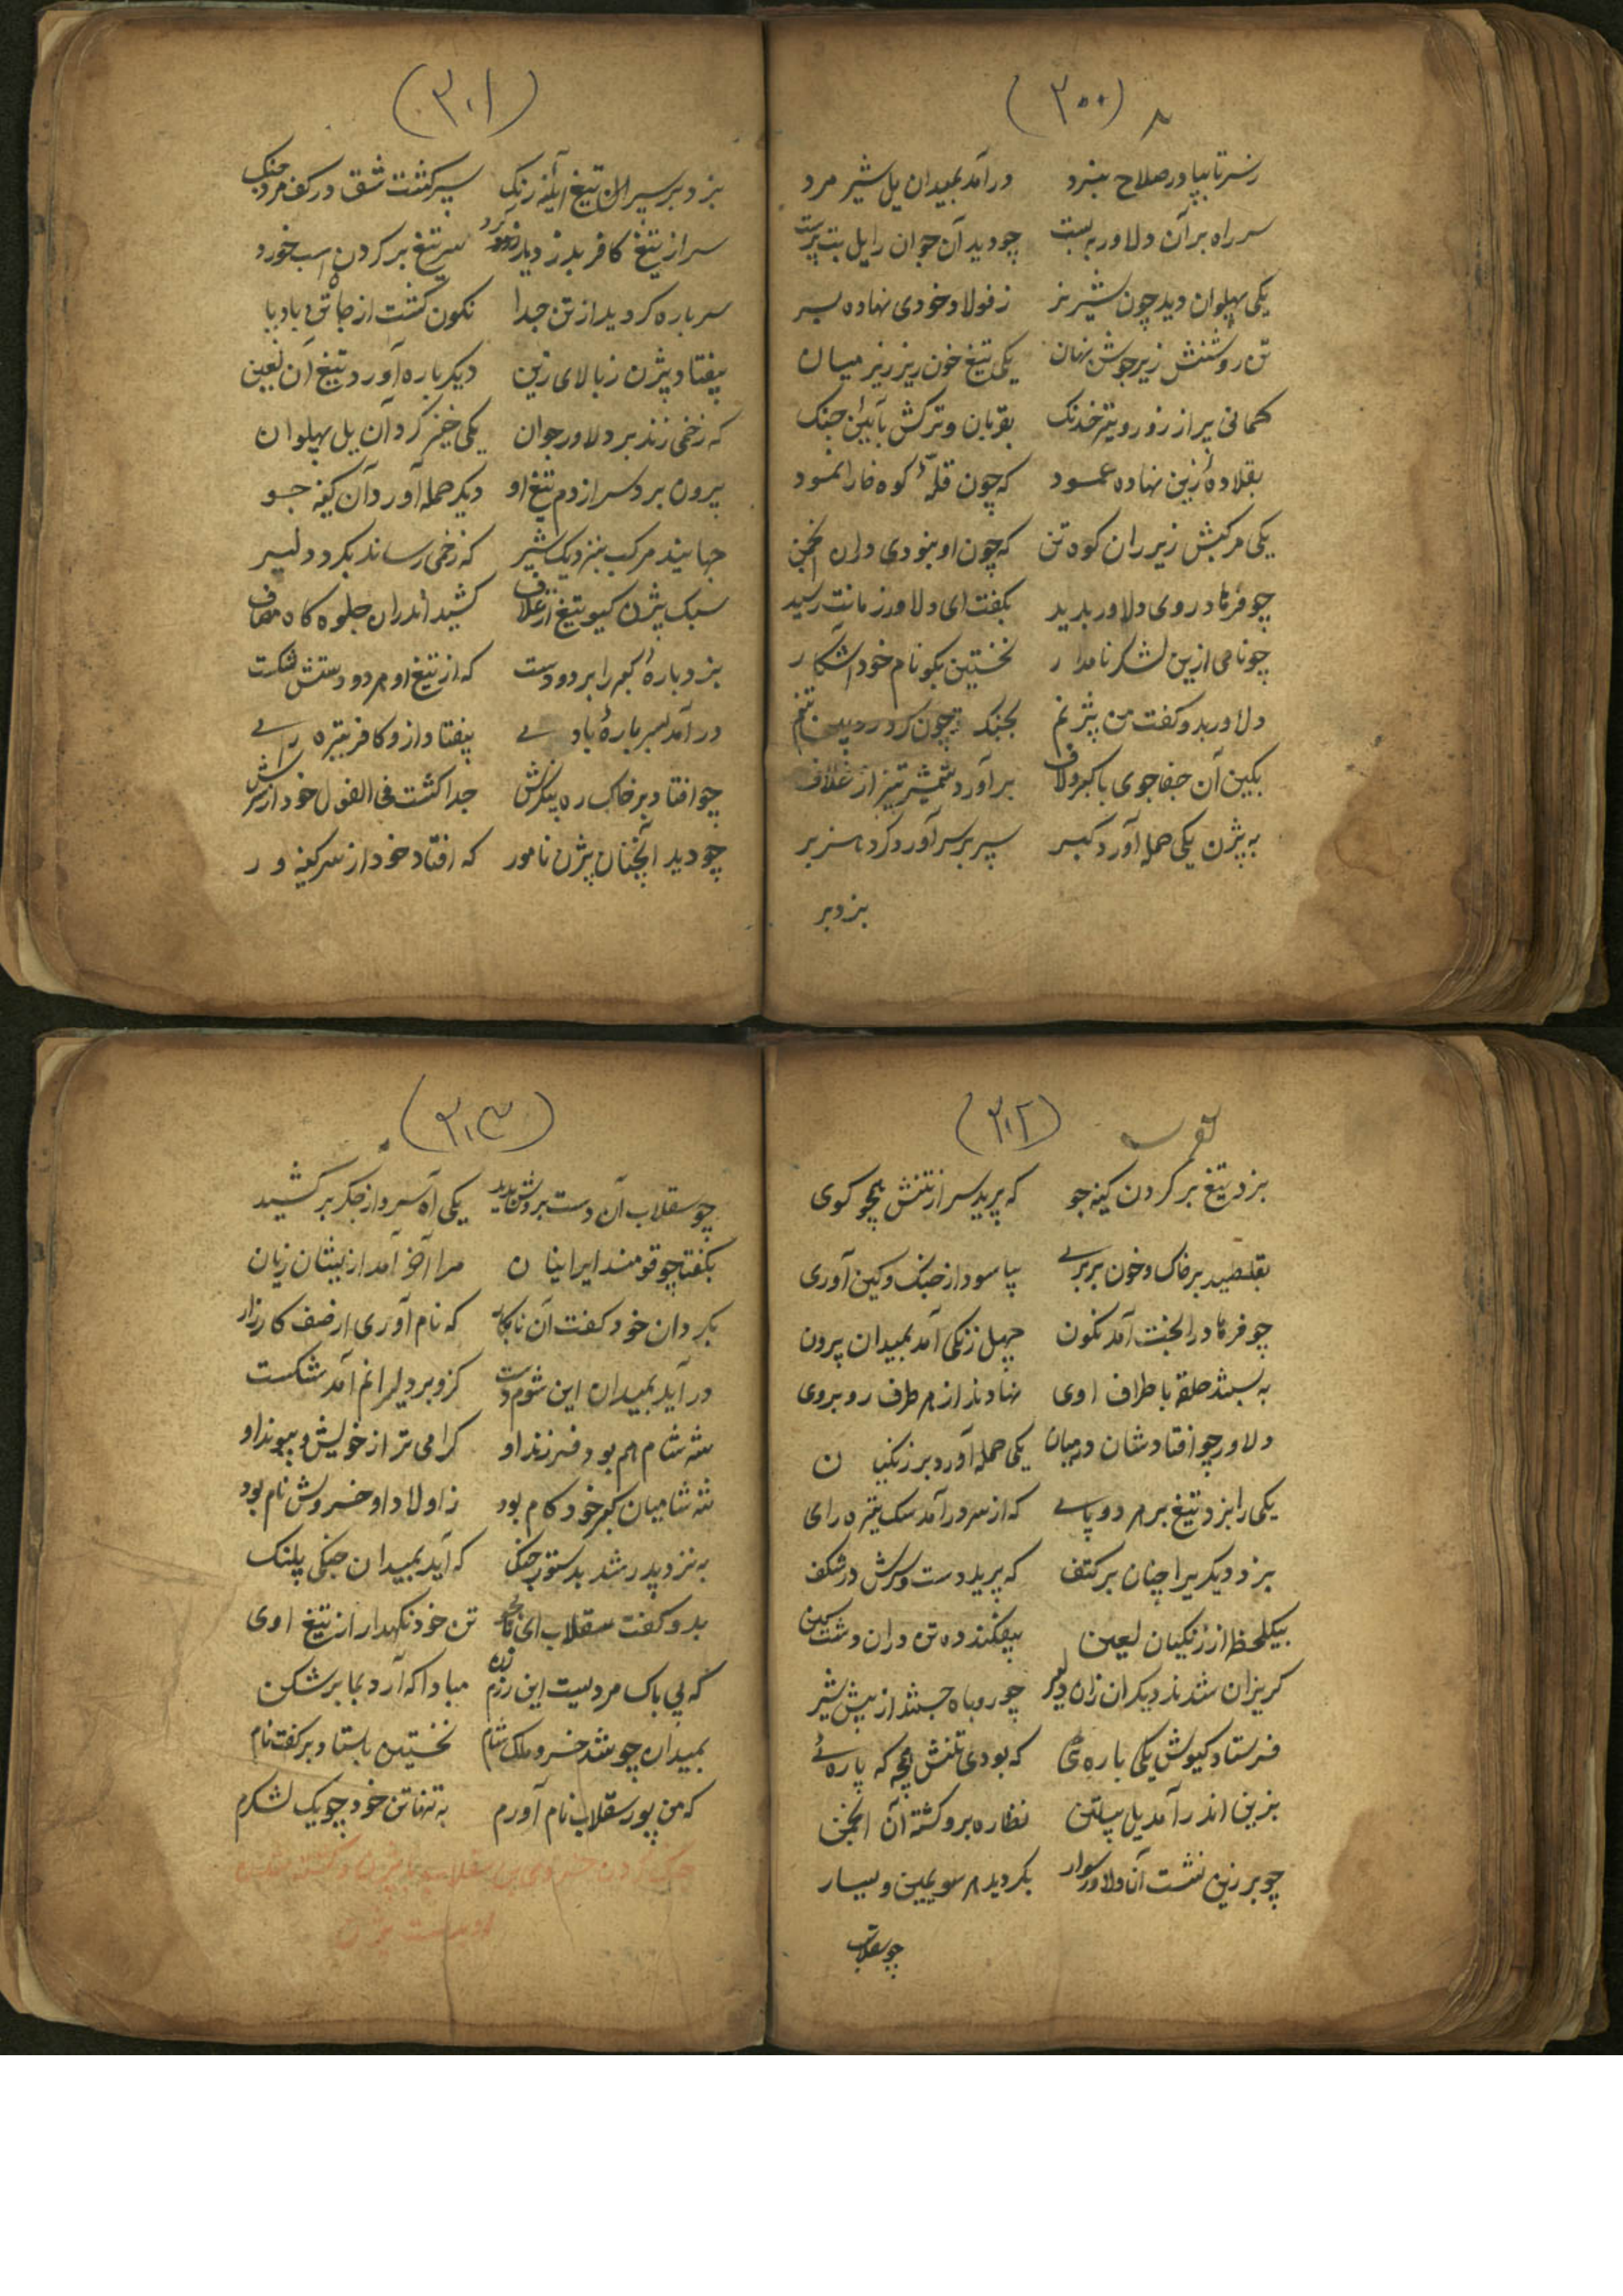 (۳۰۰)
ز سر تا بپا در صلاح نبرد درآمد بمیدان یل شیر مرد
سر راه بر آن دلاور به بست چو دید آن جوان را یل بت پرست
یکی پهلوان دید چون شیر نر ز فولاد خودی نهاده بسر
تن روشنش زیر جوشن نهان یکی تیغ خون ریز زیر میان
کمانی پر از زور و تیر خدنک بقربان و ترکش بآئین جنک
بقلادهٔ زین نهاده عمود که چون قلهٔ کوه خارا نمود
یکی مرکبش زیر ران کوه تن که چون او نبودی دران انجمن
چو فرهاد روی دلاور بدید بکفت ای دلاور زمانت رسید
چو نامی ازین لشکر نامدار نخستین بکو نام خود آشکار
دلاور بدو کفت من بیژنم بجنک چون کرد
بکین آن جفاجوی با کبر و لاف برآورد شمشیر تیز از غلاف
به بیژن یکی حمله آورد کبر سپر بر سر آورد کرد هزبر
بزد بر
(۳۰۱)
بزد بر سپر آن تیغ آئینه رنک سپر کشت شق در کف مرد جنک
سر از تیغ کافر بدزدید مرد سر تیغ بر کردن اسب خورد
سر باره کردید از تن جدا نکون کشت از جا تن بادپا
بیفتاد بیژن ز بالای زین دیکر باره آورد تیغ آن لعین
که زخمی زند بر دلاور جوان یکی خیز کرد آن یل پهلوان
برون برد سر از دم تیغ او دیکر حمله آورد آن کینه جو
جهانید مرکب بنزدیک شیر که زخمی رساند بکرد دلیر
سبک بیژن کیو تیغ از غلاف کشید اندران جلوه کاه مصاف
بزد بارهٔ کبر را بر دو دست که از تیغ او هر دو دستش شکست
درآمد بسر بارهٔ باد پی بیفتاد ازو کافر تیره رای
چو افتاد بر خاک ره پیکرش جدا کشت فی الفول خود از سرش
چو دید آنچنان بیژن نامور که افتاد خود از سر کینه ور
(۳۰۲)
بزد تیغ بر کردن کینه جو که پرید سر از تنش همچو کوی
بغلطید بر خاک و خون بربری بیاسود از جنک و کین آوری
چو فرهاد در الجنت آمد نکون چهل زنکی آمد بمیدان برون
به بستند حلقه باطراف اوی نهادند از هر طرف رو بروی
دلاور چو افتاد شان در میان یکی حمله آورد بر زنکیان
یکی را بزد تیغ بر هر دو پای که از سر درآمد سک تیره رای
بزد دیکریرا چنان بر کتف که پرید دست و سرش در شکف
بیکلحظه از زنکیان لعین بیفکند ده تن دران دشت کین
کریزان شدند دیکران زان دلیر چو روباه جستند از پیش شیر
فرستاد کیوش یکی باره ئی که بودی تنش همچو که پاره ئی
بزین اندر آمد یل پیلتن نظاره برو کشته آن انجمن
چو بر زین نشست آن دلاور سوار بکردید هر سو یمین و یسار
چو سقلاب
(۳۰۳)
چو سقلاب آن دست بردش بدید یکی آه سرد از جکر برکشید
بکفتا چو قومند ایرانیان مرا آخر آمد ازیشان زیان
بکردان خود کفت آن نابکار که نام آوری از صف کارزار
درآید بمیدان این شوم دست کزو بر دلیرانم آمد شکست
شه شام هم بود فرزند او کرامی تر از خویش و پیوند او
شه شامیان کبر خود کام بود ز اولاد او خسروش نام بود
به نزد پدر شد بدستور جنک که آید بمیدان جنکی پلنک
بدو کفت سقلاب ای تن خود نکهدار از تیغ اوی
که بی باک مردیست این رزم زن مبادا که آرد بما بر شکن
بمیدان چو شد خسرو ملک شام نخستین باستاد و برکفت نام
که من پور سقلاب نام آورم به تنها تن خود چو یک لشکرم
جنک کردن خسرو بن سقلاب با بیژن و کشته شدن
از دست بیژن